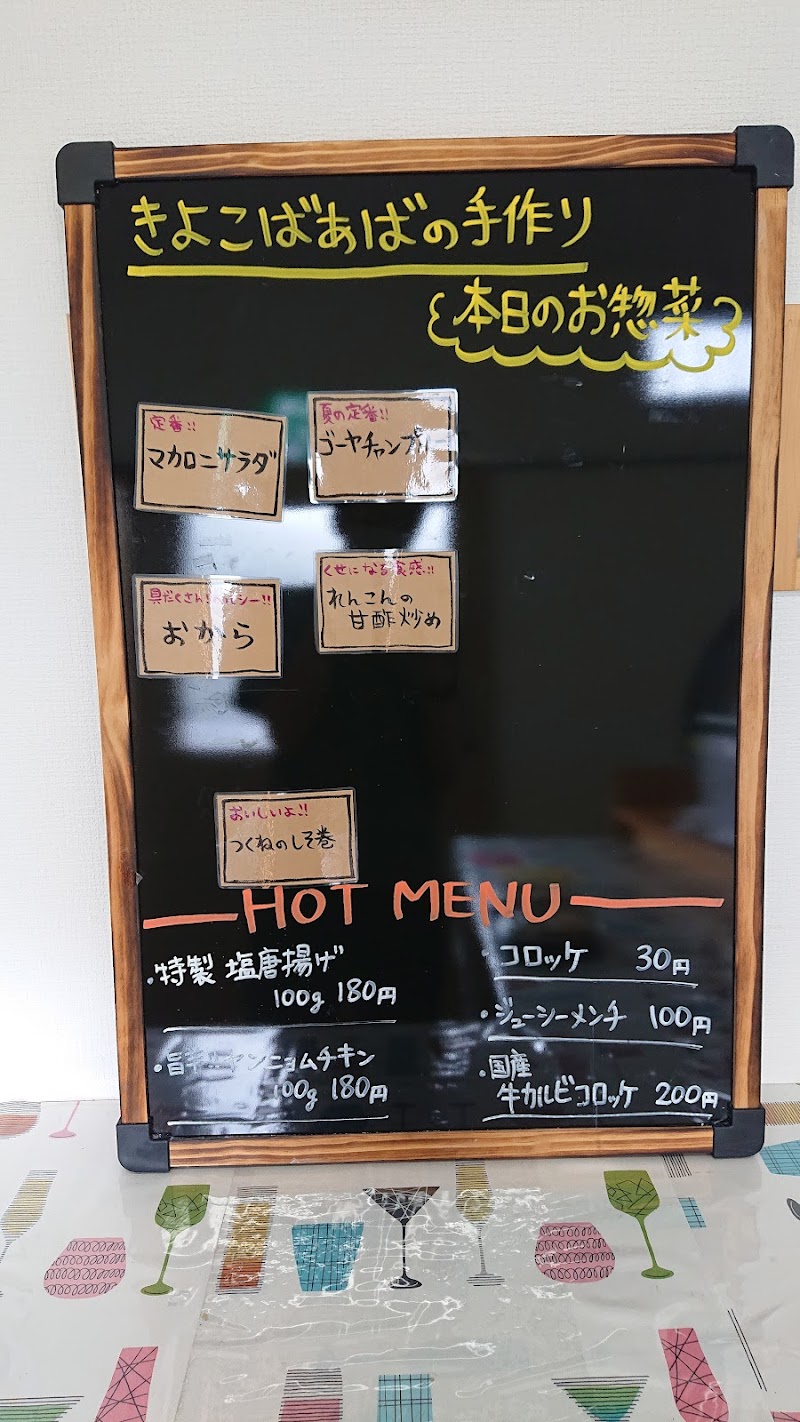 きよこばあばの手作り
本日のお惣菜
定番!!
マカロニサラダ
夏の定番!!
ゴーヤチャンプルー
具だくさん!ヘルシー!!
おから
くせになる食感!!
れんこんの
甘酢炒め
おいしいよ!!
つくねのしそ巻
HOT MENU
・特製 塩唐揚げ
100g 180円
・旨辛!ヤンニョムチキン
100g 180円
・コロッケ 30円
・ジューシーメンチ 100円
・国産
牛カルビコロッケ 200円